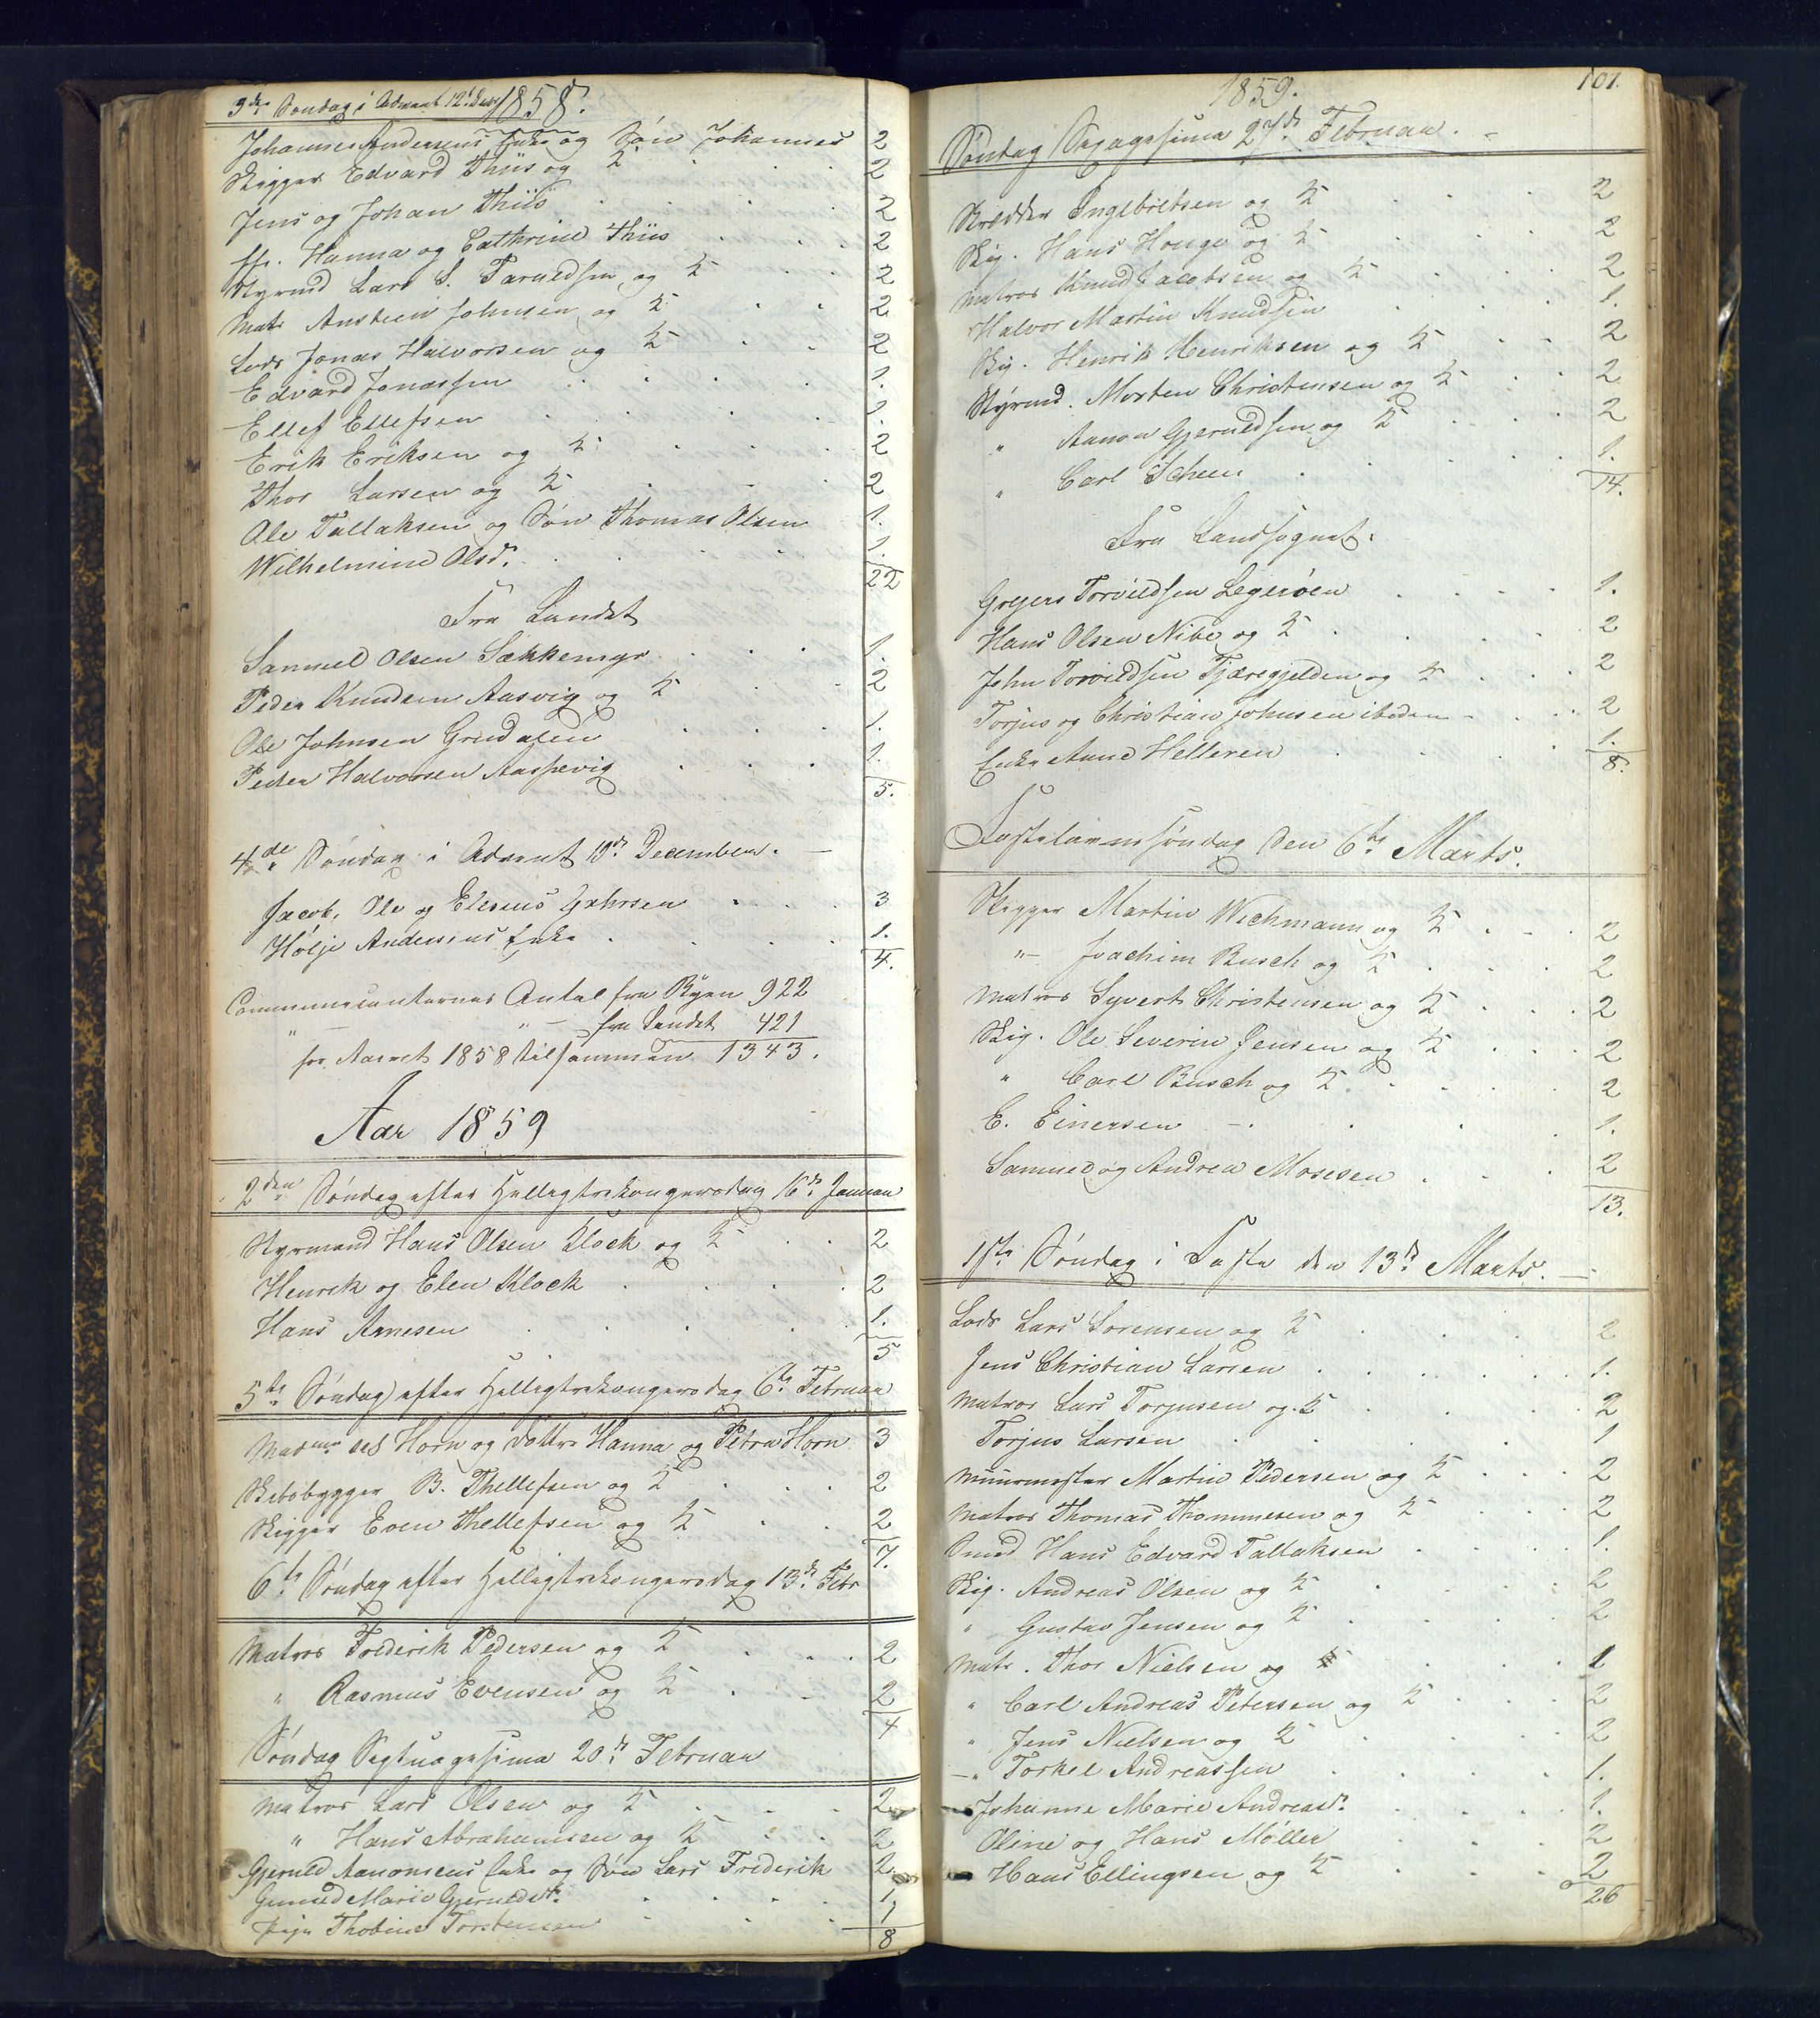 3die Søndag i Advent 12te Decbr 1858.
Johannes Andersens Enke og Søn Johannes 2
Skipper Edvard Thiis og K 2
Jens og Johan Thiis 2
Hanna og Cathrine Thiis 2
Styrmd Lars S. Taraldsen og K 2
Mats Anstein Johnsen og K 2
Lods Jonas Halvorsen og K 2
Edvard Jonassen 1.
Ellef Ellefsen 1.
Erik Eriksen og K 2
Thor Larsen og K 2
Ole Tallaksen og Søn Thomas Olsen 1.
Wilhelmine Olsdr. 1.
22
Fra Landet
Samuel Olsen Sækkemyr 1.
Peder Knudsen Aasvig og K 2
Ole Johnsen Grudalen 1.
Peder Halvorsen Aaspevig 1.
5.
4de Søndag i Advent 19de December.
Jacob, Ole og Elenus Gahrsen 3
Holje Andersens Enke 1.
4.
Communicanternes Antal fra Byen 922
" — " — fra Landet 421
for Aaret 1858 tilsammen 1343.
Aar 1859
2den Søndag efter Helligtrekongersdag 16de Januar
Styrmand Hans Olsen Klock og K 2
Henrik og Elen Klock 2
Hans Arnesen 1.
5
5te Søndag efter Helligtrekongersdag 6te Februar
Madme sel Horn og Døttre Hanna og Petra Horn 3
Skibsbygger B. Thellefsen og K 2
Skipper Even Thellefsen og K 2
7.
6te Søndag efter Helligtrekongersdag 13de Febr
Matros Frederik Pedersen og K 2
" Rasmus Evensen og K 2
4
Søndag Septuagesima 20de Februar
Matros Lars Olsen og K 2
" Hans Abrahamsen og K 2
Gjeruld Aanonsens Enke og Søn Lars Frederik 2
Gunild Marie Gjeruldsdr. 1
Pige Thobine Torstensen 1
8
1859. 101.
Søndag Sexagesima 27de Februar.
Skrædder Ingebretsen og K 2
Skip. Hans Houge og K 2
Matros Knud Jacobsen og K 2
Halvor Martin Knudsen 1.
Skip. Henrik Henriksen og K 2
Styrmd. Morten Christensen og K 2
" Aanon Gjeruldsen og K 2
" Carl Scheen 1.
14.
Fra Landsognet.
Gregers Torvildsen Legeröen 1.
Hans Olsen Nibe og K 2
John Torvildsen Tjæregjelden og K 2
Torjus og Christian Johnsen ibidem 2
Enke Anne Helleren 1.
8.
Fastelavns søndag den 6te Marts.
Skipper Martin Wichmann og K 2
" — Joachim Busch og K 2
Matros Syvert Christensen og K 2
Skip. Ole Severin Jensen og K 2
" Carl Busch og K 2
E. Einersen 1.
Samuel og Andrea Mosesen 2
13.
1ste Søndag i Faste den 13de Marts.
Lods Lars Sorensen og K 2
Jens Christian Larsen 1.
Matros Lars Torjusen og K 2
Torjus Larsen 1
Muurmester Martin Pedersen og K 2
Matros Thomas Thommesen og K 2
Smed Hans Edvard Tallaksen 1.
Skip. Andreas Olsen og K 2
" Gustav Jensen og K 2
Mats. Thor Nielsen og K 1
" Carl Andreas Petersen og K 2
" Jens Nielsen og K 2
" Torkel Andreassen 1.
Johanne Marie Andreasdr. 1.
Oline og Hans Møller 2
Hans Ellingsen og K 2
26